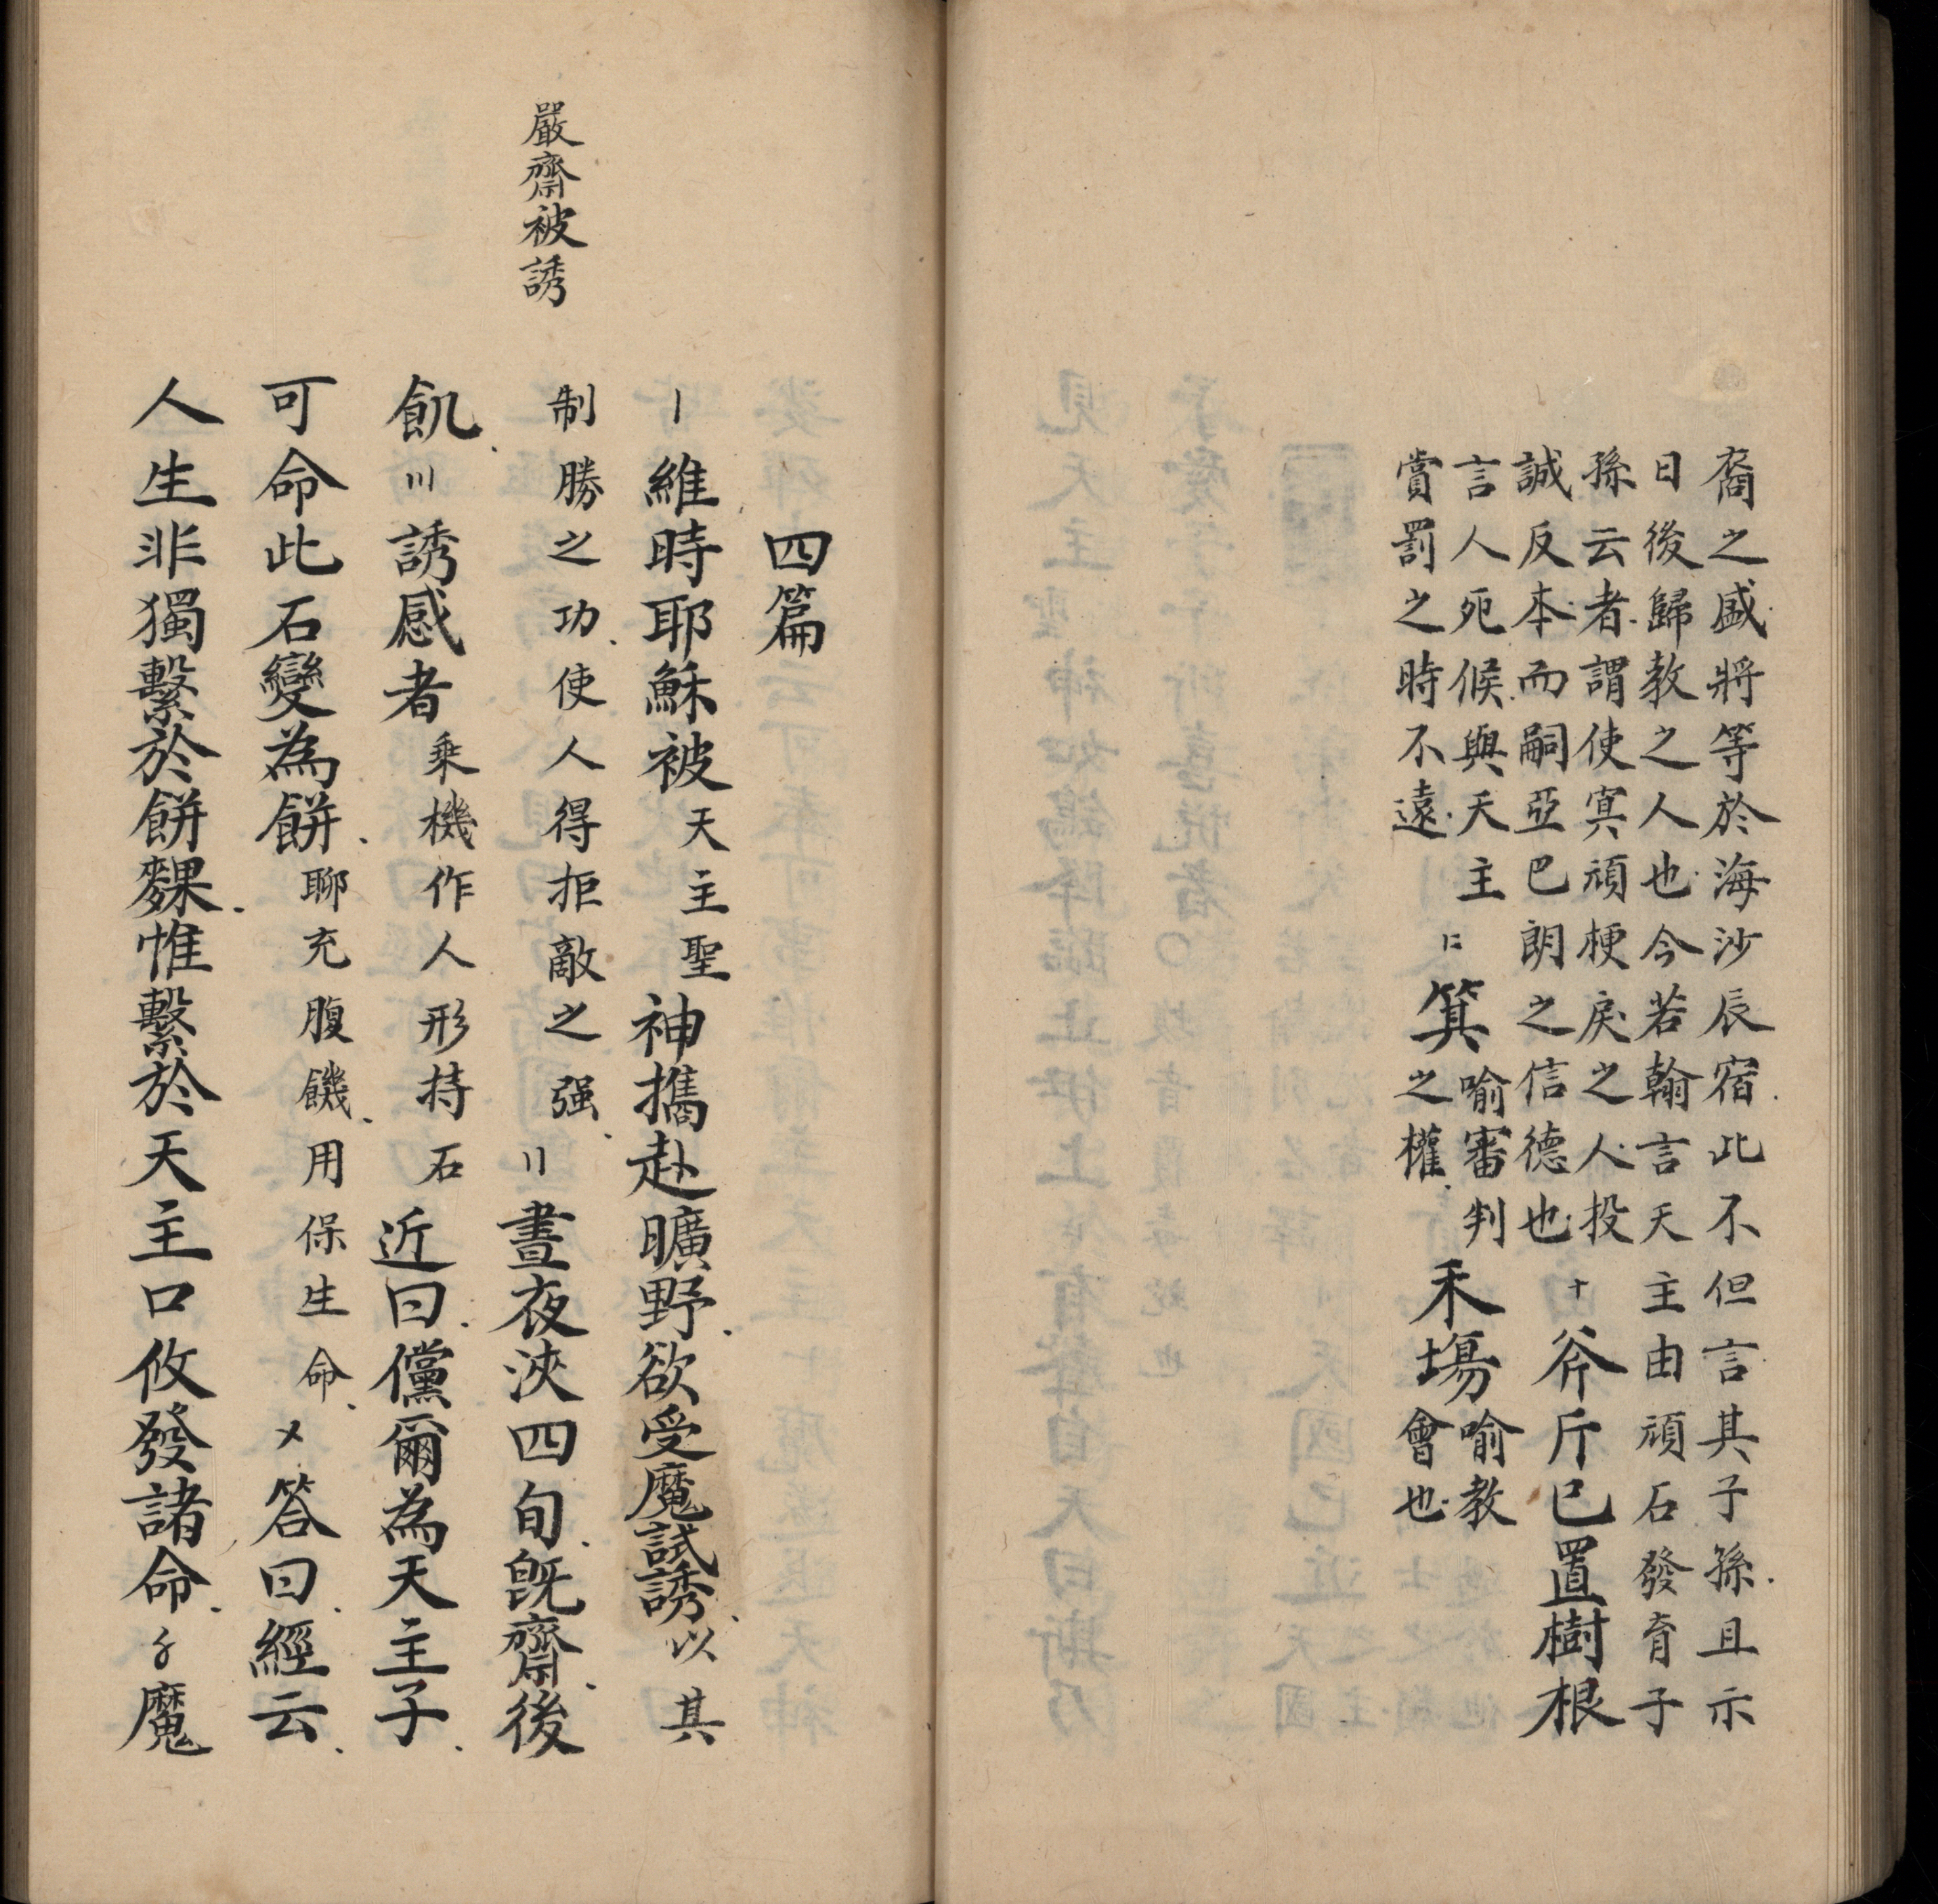 裔之盛將等於海沙辰宿此不但言其子孫且示
日後歸教之人也今若翰言天主由頑石發育子
孫云者謂使冥頑梗戾之人投
誠反本而嗣亞巴朗之信德也
十斧斤已置樹根
言人死候與天主
賞罰之時不遠
〢箕
喻審判
之權
禾塲
喻教
會也
四篇
〡維時耶穌被天主聖神攜赴曠野欲受魔試誘以其
嚴齋被誘
制勝之功使人得拒敵之强〢晝夜浹四旬旣齋後
飢〣誘感者乘機作人形持石近曰儻爾為天主子
可命此石變為餅聊充腹饑用保生命〤答曰經云
人生非獨繫於餅䴹惟繫於天主口攸發諸命〥魔